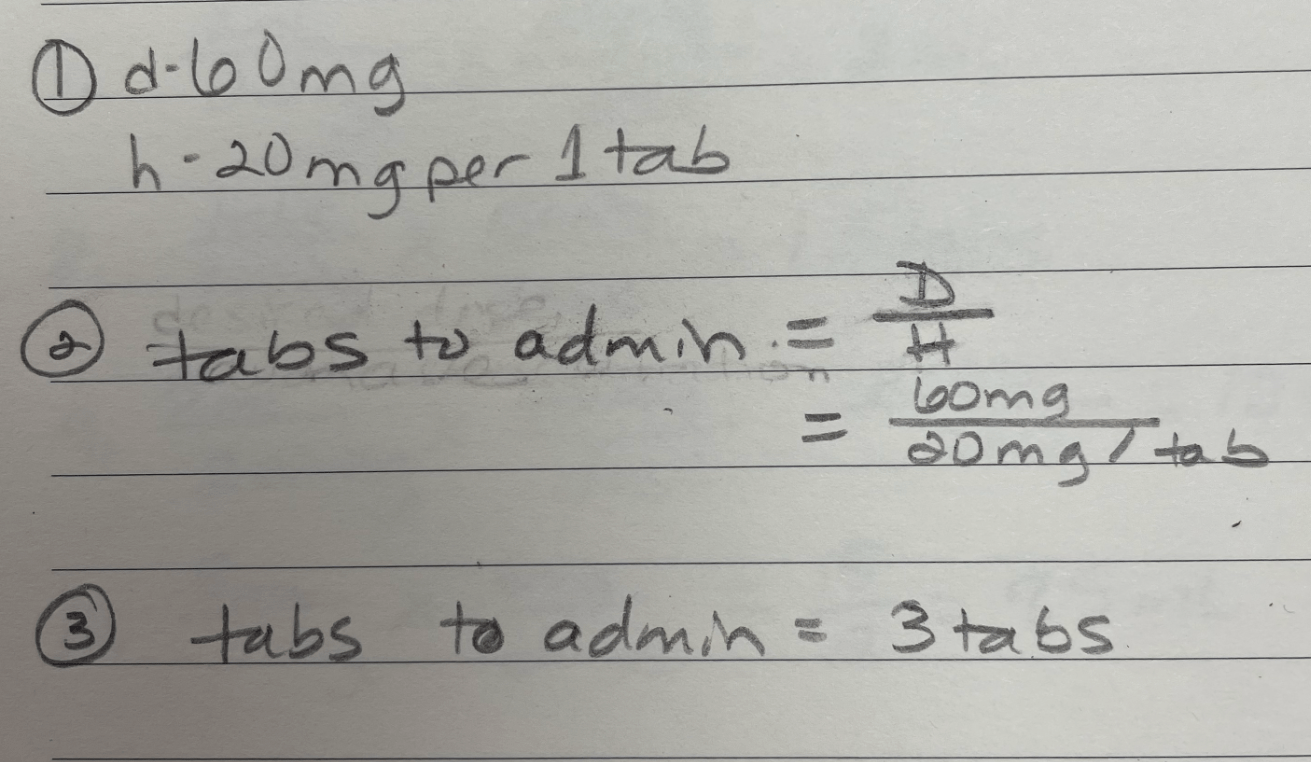 ① d-60mg
h-20mg per 1 tab
② tabs to admin. = D/H
= 60mg / 20mg/tab
③ tabs to admin = 3 tabs